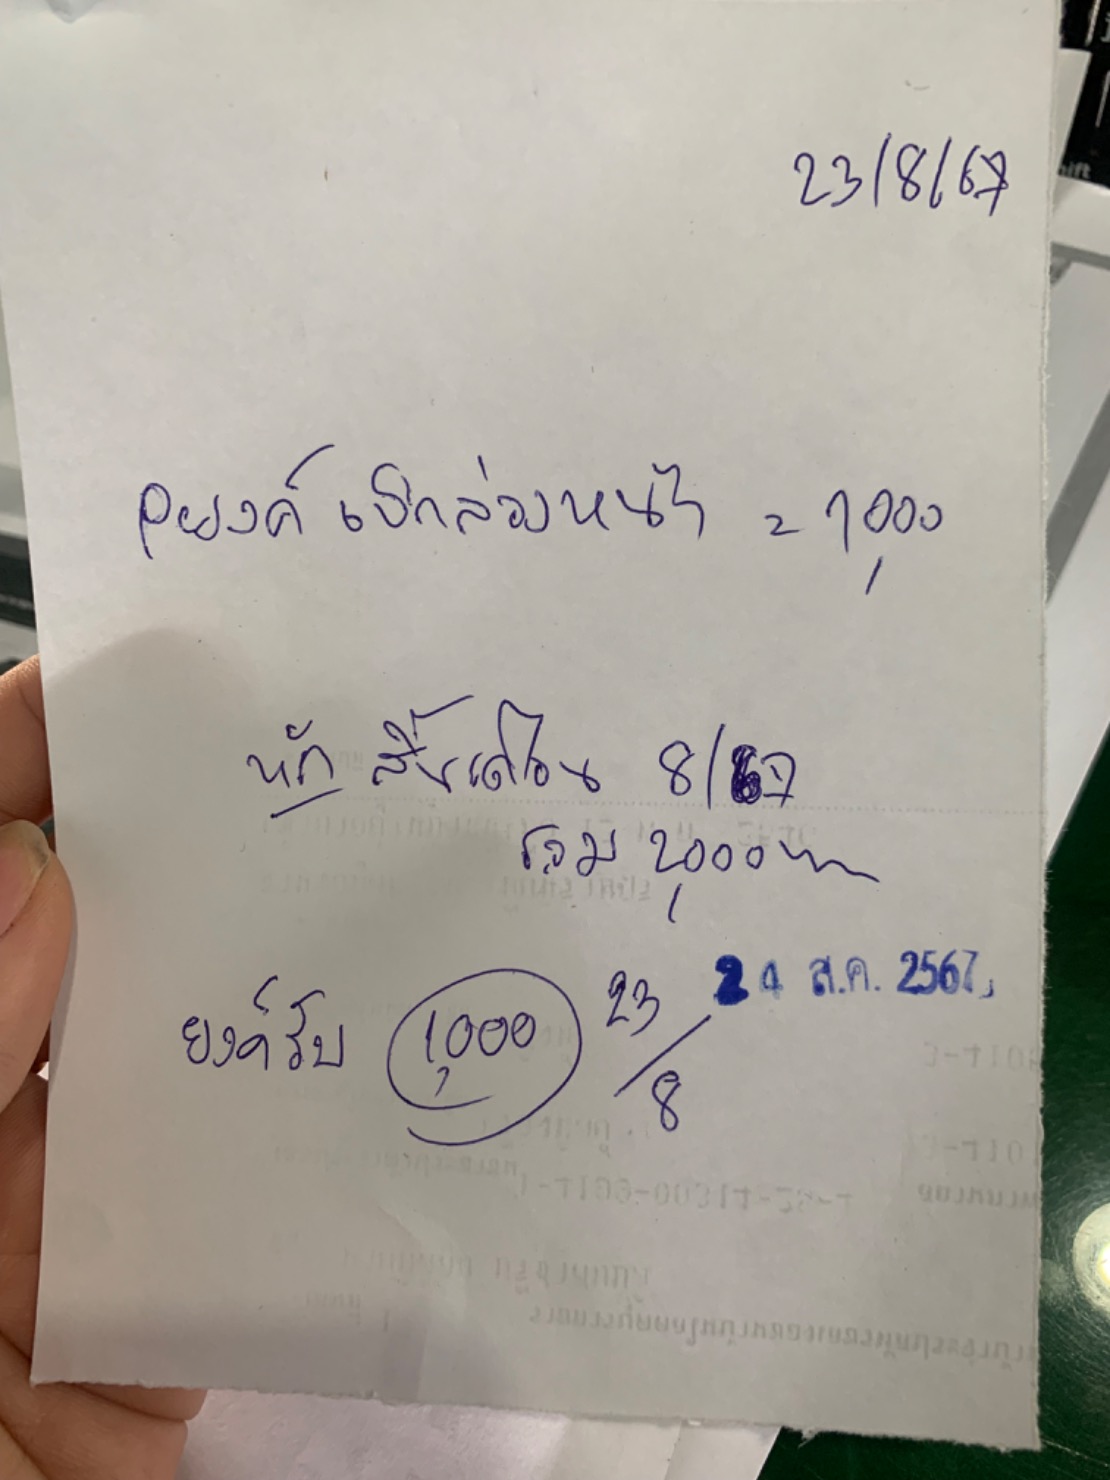 23/8/67
Pยงค์ เบิกล่วงหน้า = 1,000
หัก สิ้นเดือน 8/67
รวม 2,000
24 ส.ค. 2567
ยงค์รับ 1,000 23/8